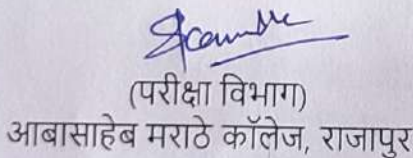 (परीक्षा विभाग)
आबासाहेब मराठे कॉलेज, राजापुर